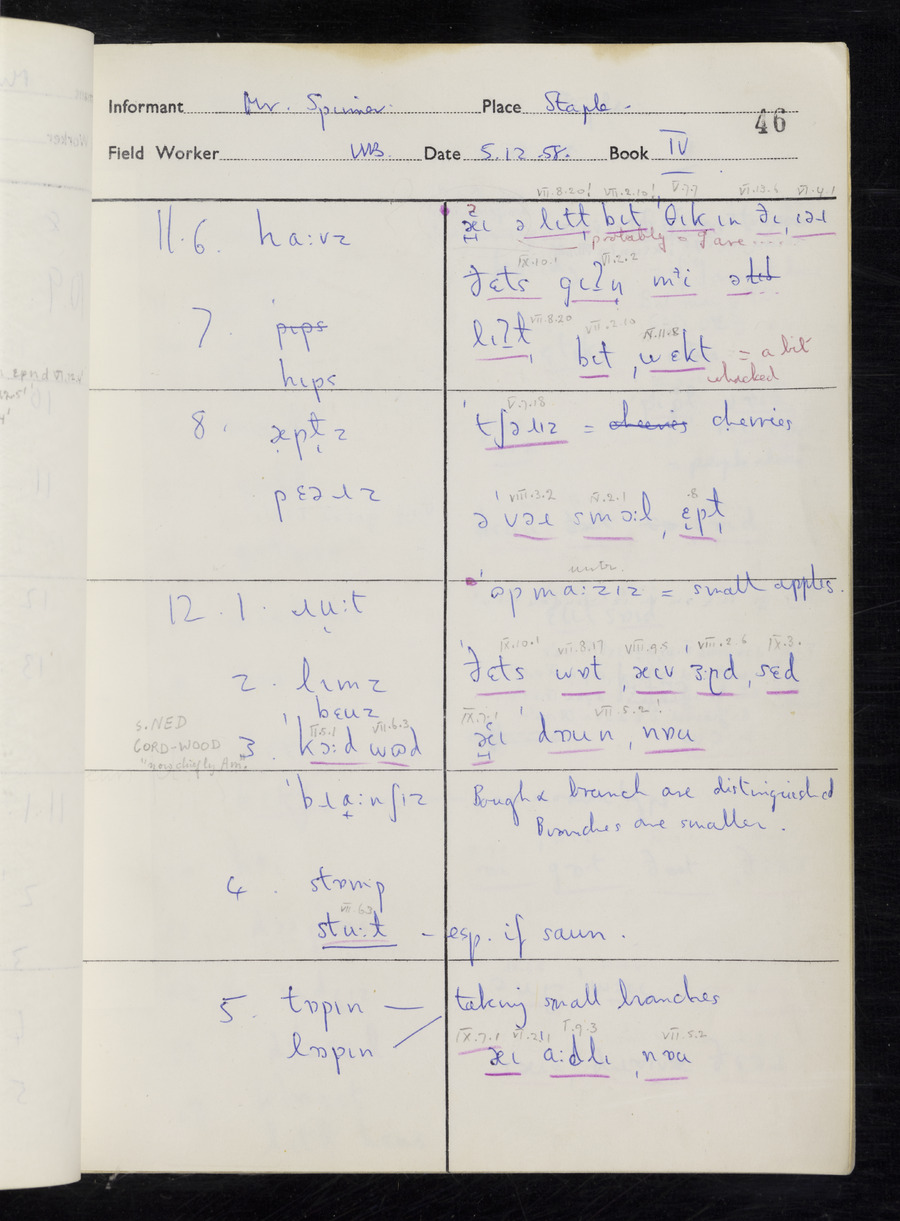 Informant Mr. Spinner. Place Staple -
46
Field Worker WB. Date 5.12.58. Book IV
VII.8.20! VII.2.10! V.7.7 VI.13.6 VI.4.1
11.6. ha:vz
ə lɪtl bɪt θɪk ɪn ðɪ ɪəɹ
probably = I are ....
IX.10.1 VII.2.2
ðɛts gɪʔn mᵊi ə
7. pɪps
lɪʔl VII.8.20 VII.2.10 IV.11.8
hɪps
bɪt wɛkt = a bit whacked
V.7.18
8. æpl̩z
tʃəɹɪz = cheeries cherries
pɛəɹz
VIII.3.2 IV.2.1 .8
ə vəɹ smɔ:l ɛpl
12.1. ɹu:t
ɒpmɑ:zɪz = small apples.
IX.10.1 VII.8.17 VIII.9.5 VIII.2.6 IX.3.
2. lɪmz
ðɛts wɒt æɪv ɜ:d sɛd
bɛuz
s. NED
CORD-WOOD
"now chiefly Am."
II.5.1 VII.6.3
3 kɔ:d wʊd
IX.7.1 VII.5.2!
æɪ doun nɒu
bɹa:nʃɪz
Bough & branch are distinguished
Branches are smaller.
4. stɒmp
VII.6.3
stu:l - esp. if sawn.
5. tɒpɪn — taking small branches
lɒpɪn
IX.7.1 VI.2.1 I.9.3 VII.5.2
æɪ a:dlɪ nɒu